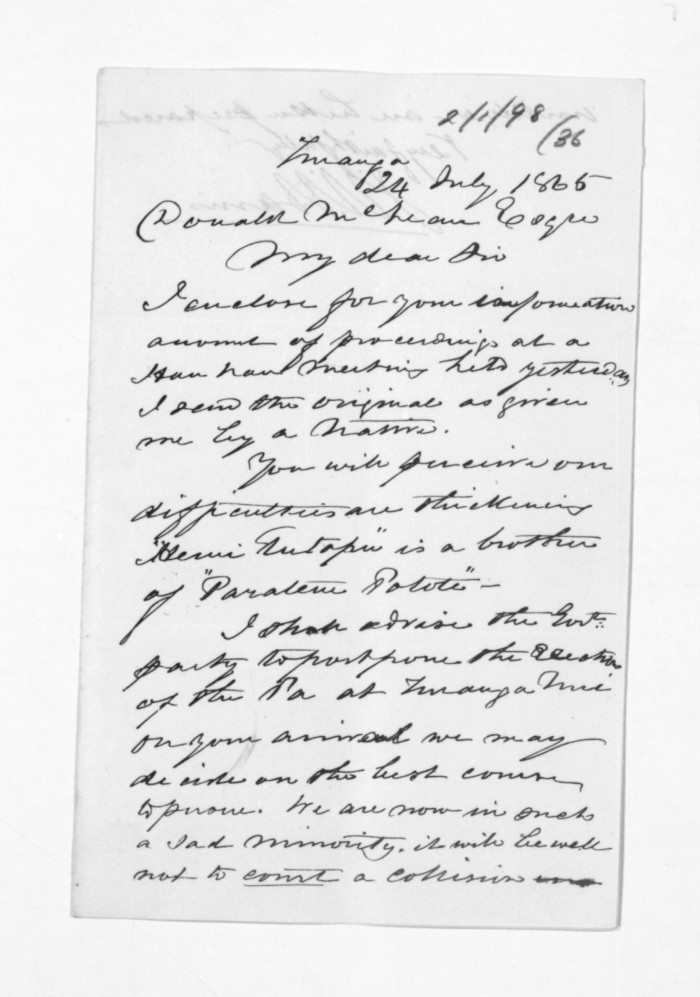 2/1/98
/36
Turanga
24 July 1865
Donald McLean Esqre
My dear Sir
I enclose for your information
account of proceedings at a
Hau hau meeting held yesterday
I send the original as given
me by a Native.
You will perceive our
difficulties are thickening
"Hemi Tutapu" is a brother
of "Paratene Potote" -
I shall advise the Govt:
party to postpone the Erection
of the Pa at Turanga Nui
on your arrival we may
decide on the best course
to pursue. We are now in such
a sad minority, it will be well
not to court a collision